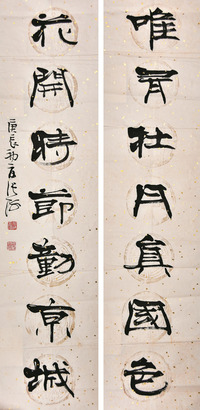 唯有牡丹真國色
花開時節動京城
庚辰初夏